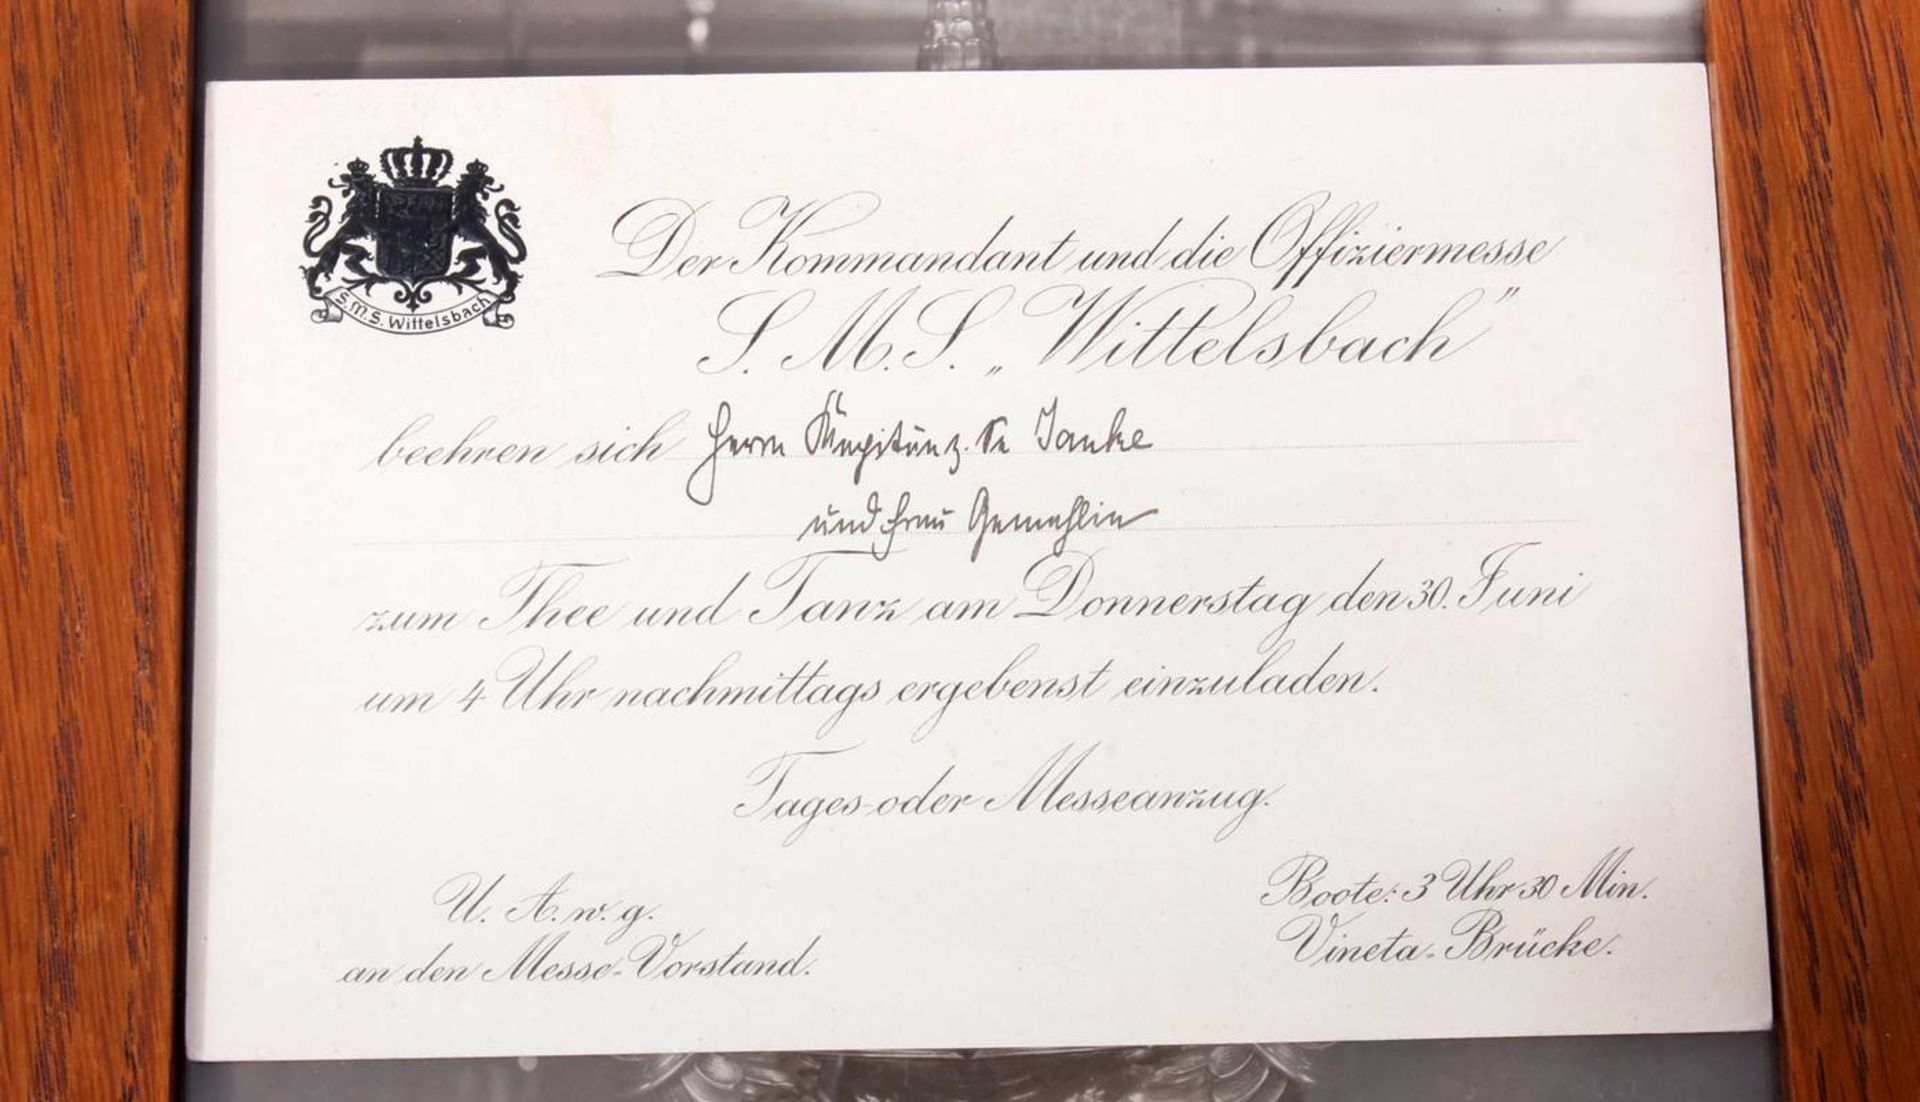 S.M.S. Wittelsbach
Der Kommandant und die Offiziermesse
S. M. S. „Wittelsbach"
beehren sich Herrn Kapitän z. See Janke
und Frau Gemahlin
zum Thee und Tanz am Donnerstag den 30. Juni
um 4 Uhr nachmittags ergebenst einzuladen.
Tages- oder Messeanzug.
U. A. w. g.
an den Messe-Vorstand.
Boote: 3 Uhr 30 Min.
Vineta-Brücke.